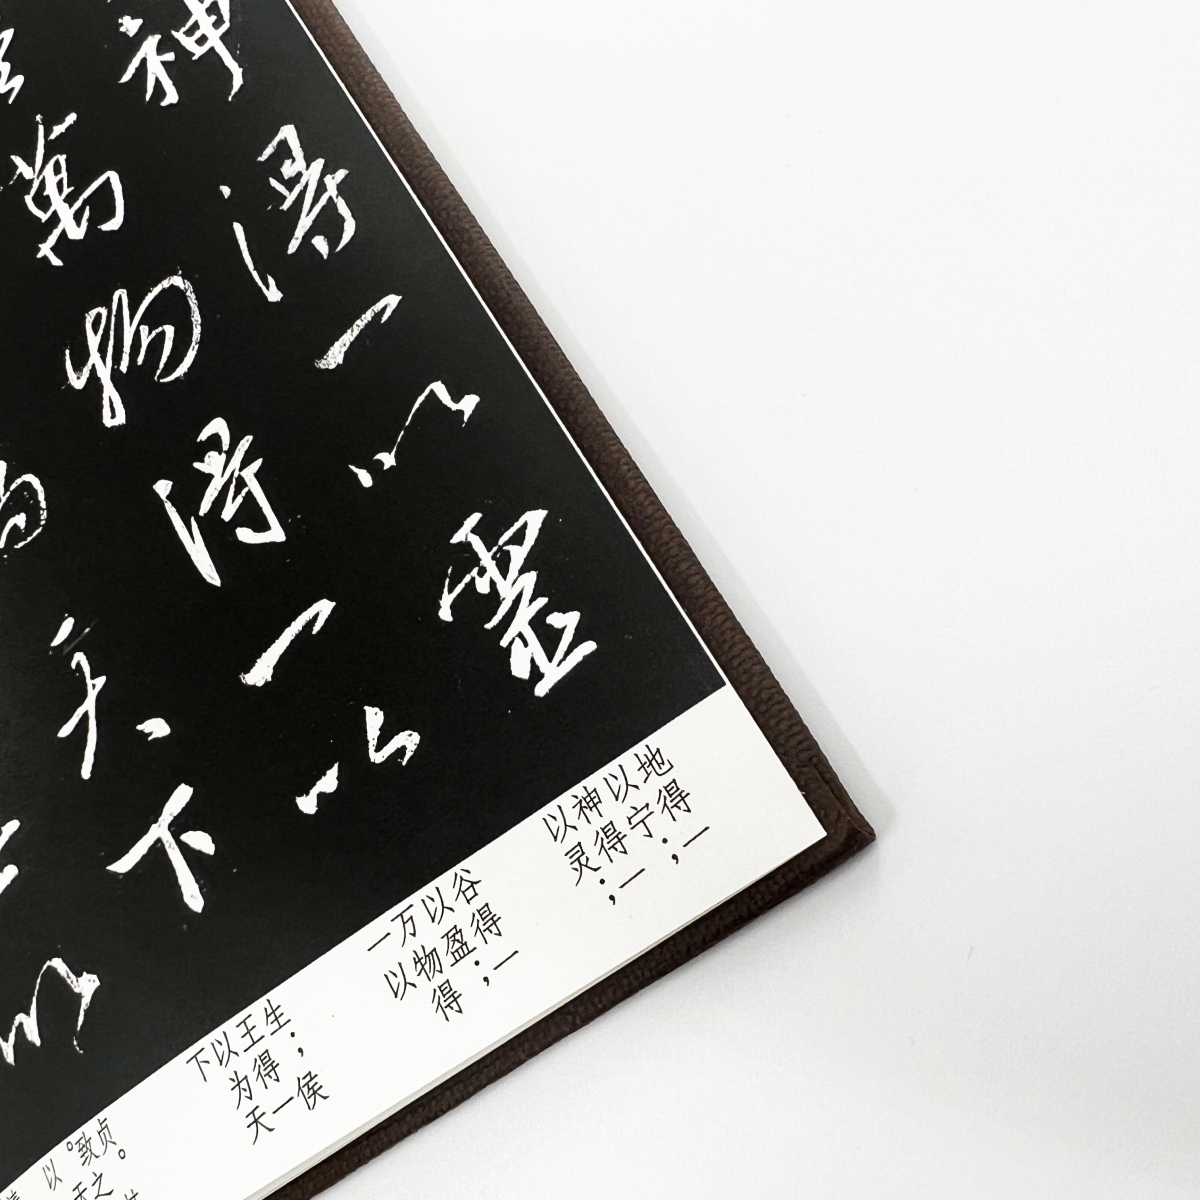 神得一以靈
萬物得一以
天下
以
地得一
以宁；
神得一
以灵；
谷得一
以盈；
万物得
一以
生；侯
王得一
以为天
下
贞。
致之
。天
以